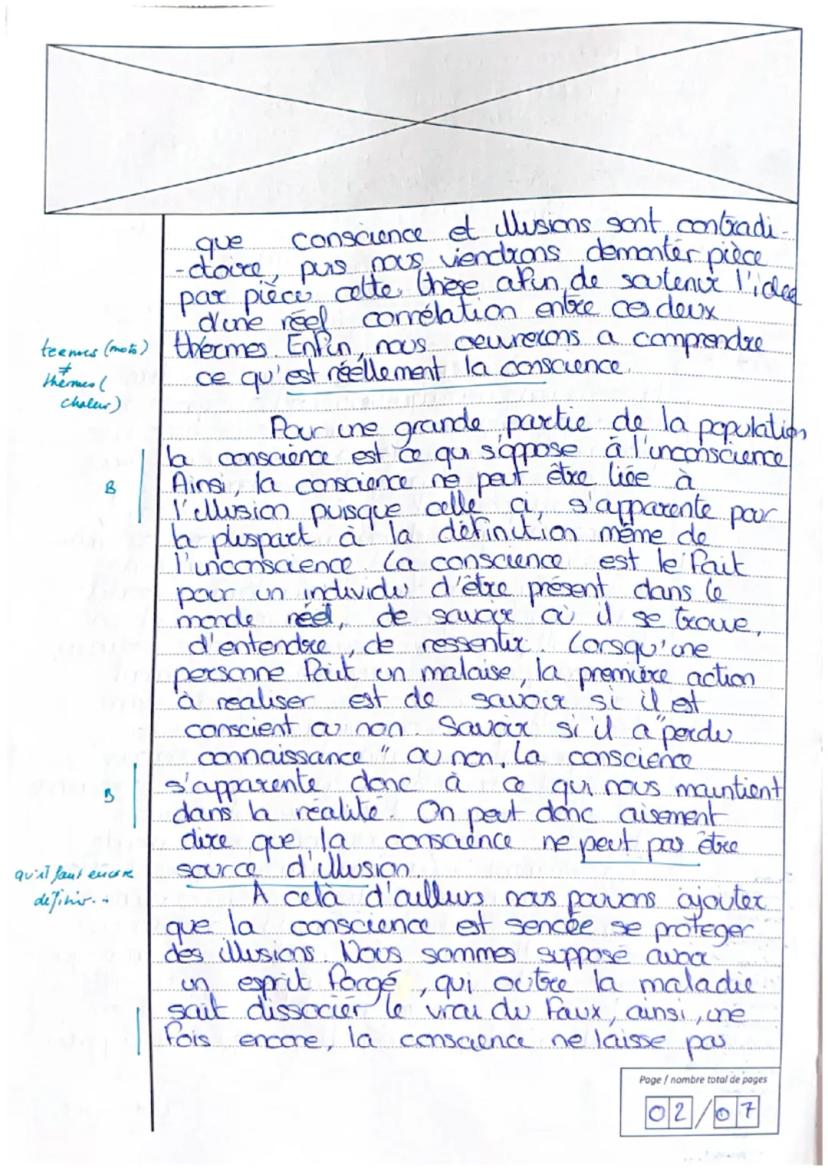 que conscience et illusions sont contradi-
-ctoire, puis nous viendrons demonter pièce
par pièce cette thèse afin de soutenir l'idee
d'une réel corrélation entre ces deux
thèrmes. Enfin, nous oeuvrerons a comprendre
ce qu'est réellement la conscience.
termes (mots)
≠
thèmes (
chaleur)
Pour une grande partie de la population
la conscience est ce qui s'oppose à l'inconscience
Ainsi, la conscience ne peut être liée à
B
l'illusion puisque celle ci s'apparente pour
la pluspart à la définition même de
l'inconscience. La conscience est le fait
pour un individu d'être présent dans le
monde réel, de savoir où il se trouve,
d'entendre, de ressentir. Lorsqu'une
personne fait un malaise, la première action
à realiser est de savoir si il est
conscient ou non. Savoir si il a "perdu
connaissance" ou non. La conscience
s'apparente donc à ce qui nous maintient
B
dans la réalité. On peut donc aisement
dire que la conscience ne peut pas être
source d'illusion.
qu'il faut encore
définir..
A celà d'ailleurs nous pouvons ajouter
que la conscience est sencée se proteger
des illusions. Nous sommes supposé avoir
un esprit forgé, qui outre la maladie
sait dissocier le vrai du faux, ainsi, une
fois encore, la conscience ne laisse pas
Page / nombre total de pages
02/07